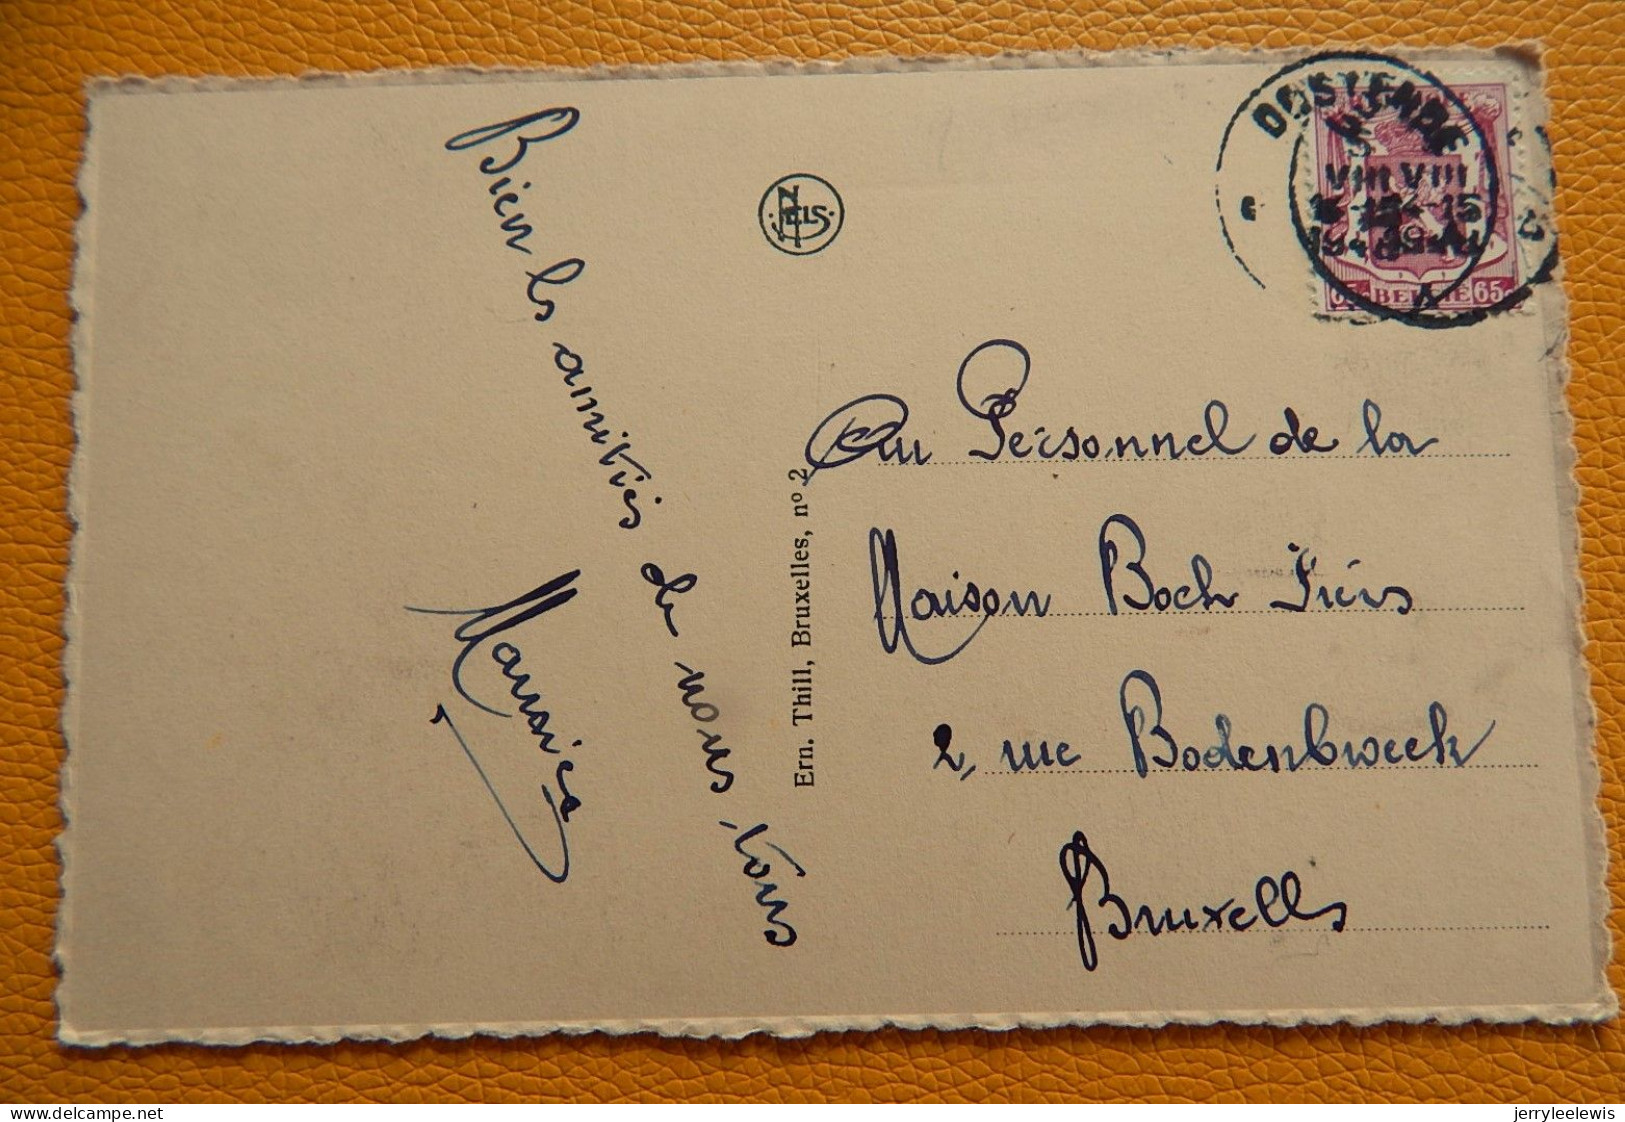 Bien les amitiés de nous tous
Maurice
NELS
Ern. Thill, Bruxelles, nº 2
OOSTENDE
VIII VIII
14-15
BELGIE 65c
Au Personnel de la
Maison Boch Frères
2, rue Bodenbroeck
Bruxelles
delcampe.net
jerryleelewis